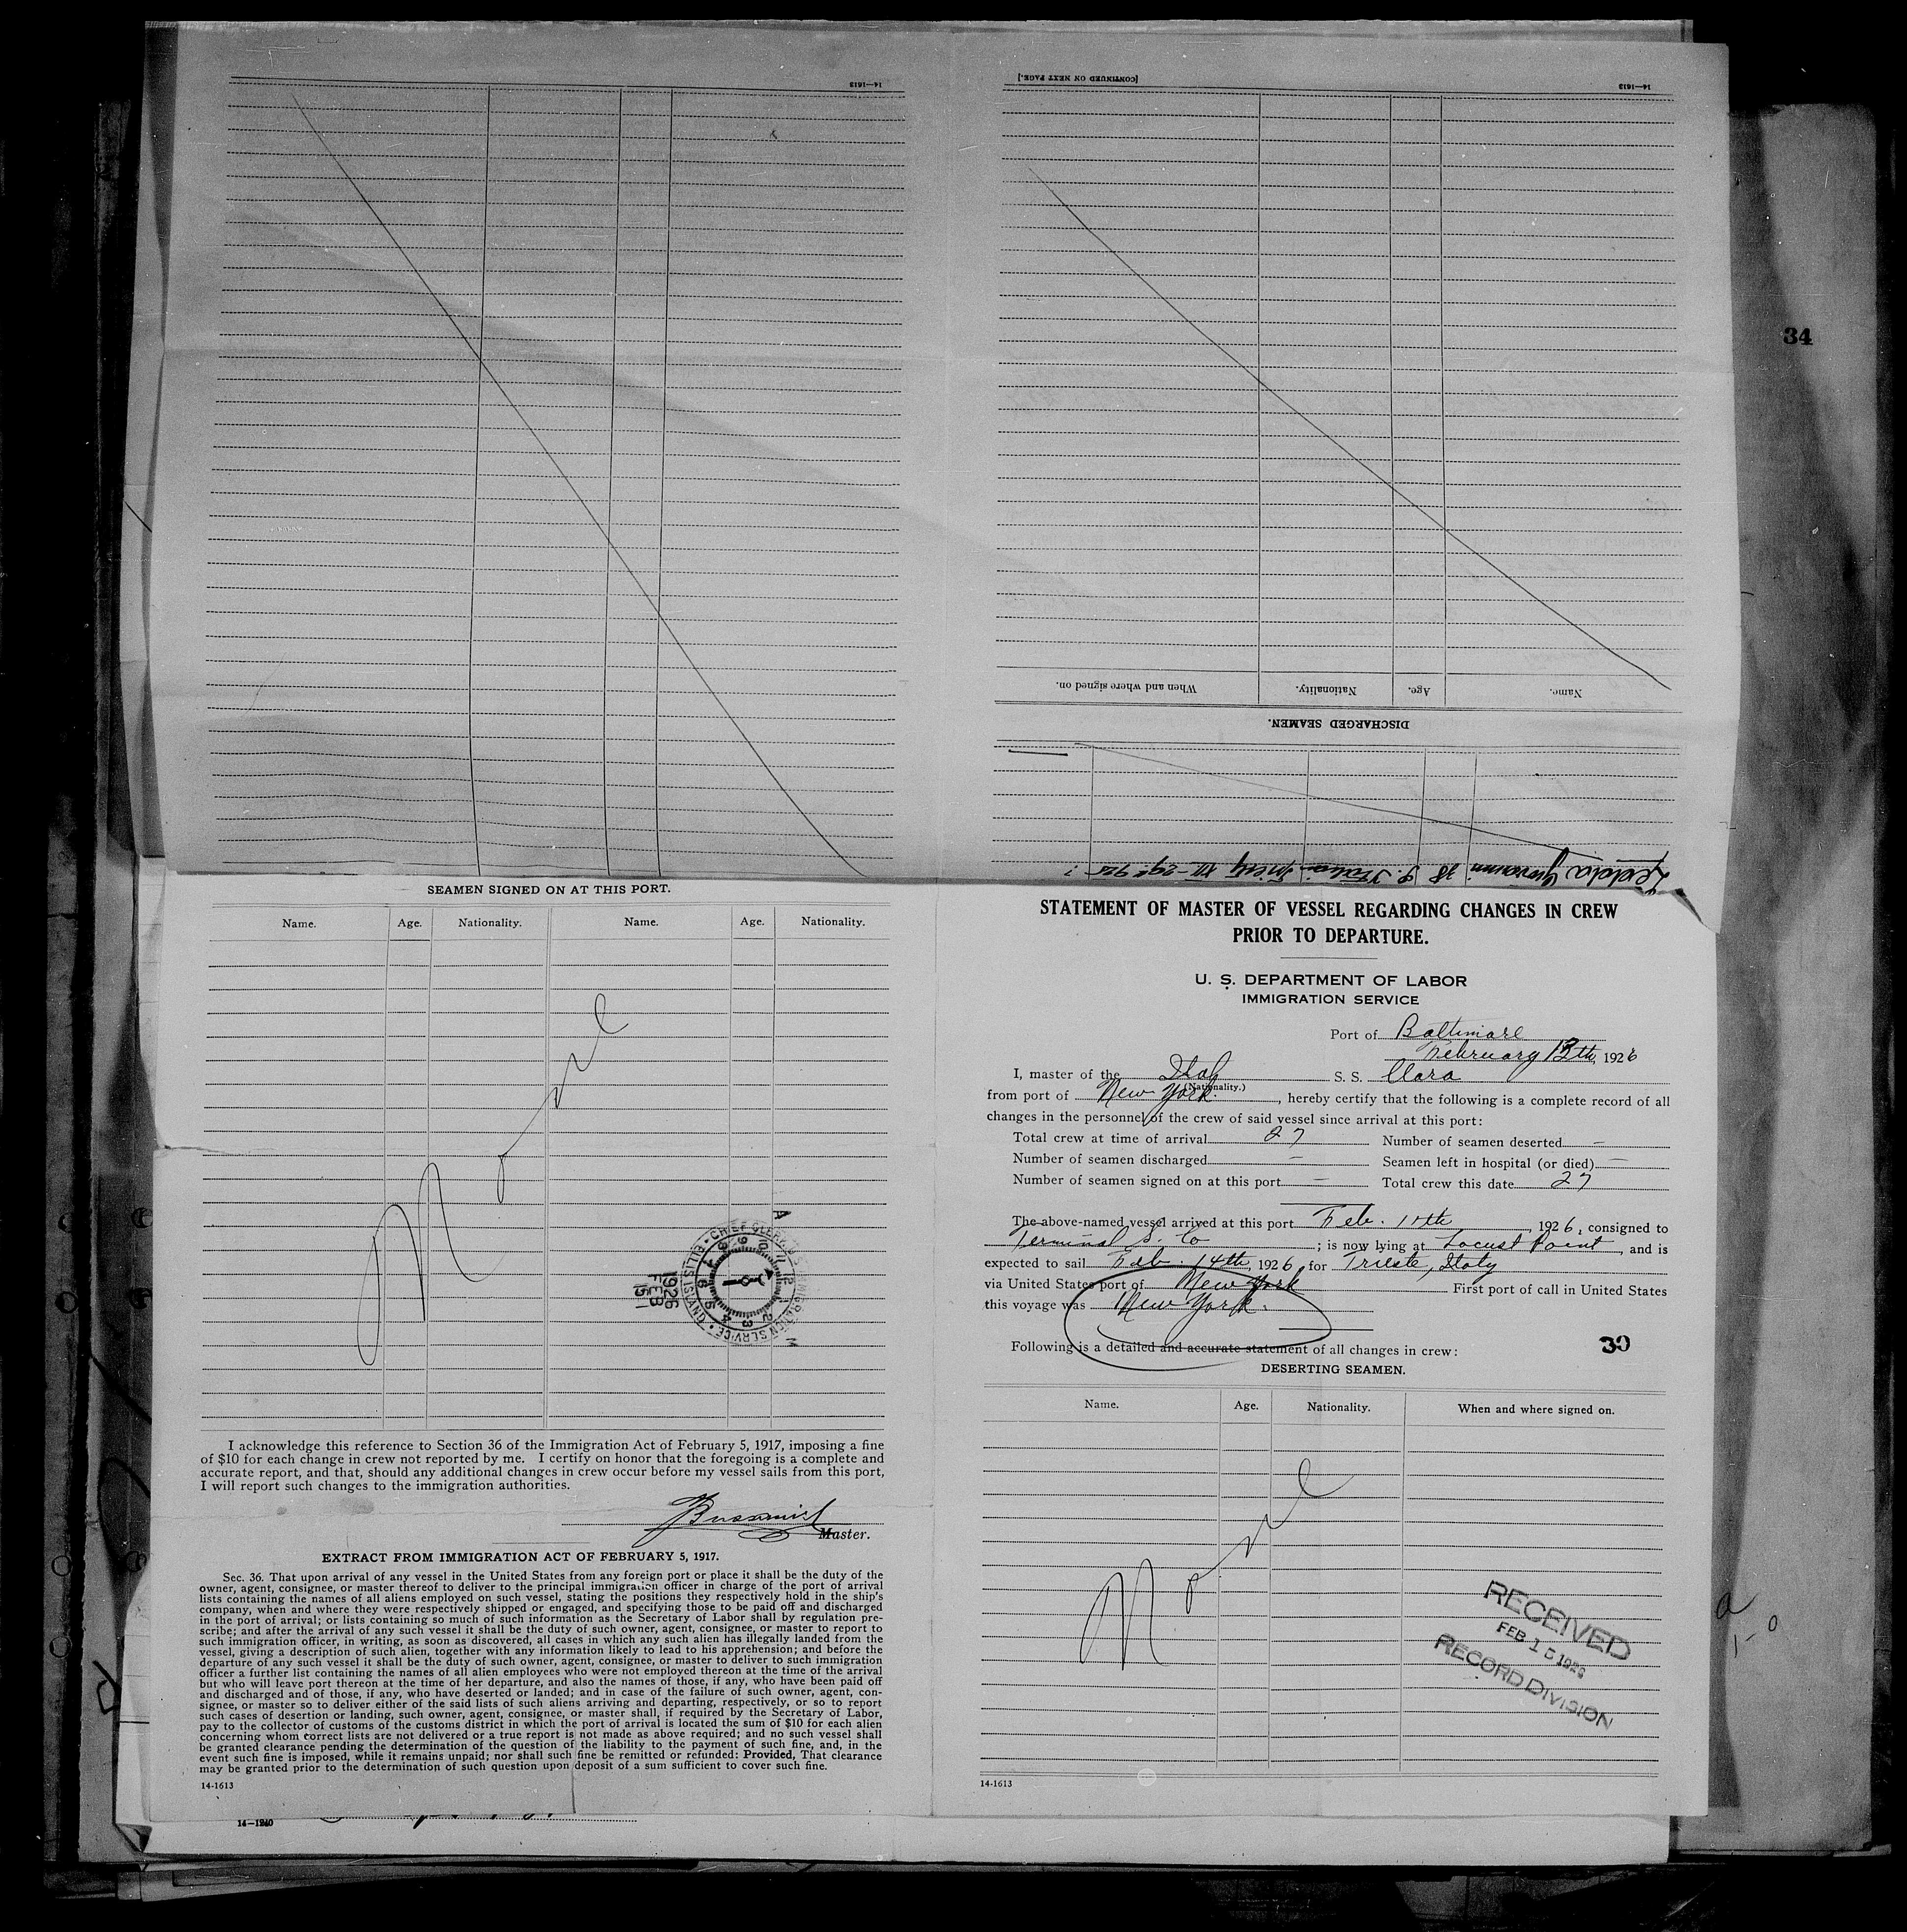 14—1613
[CONTINUED ON NEXT PAGE.]
14—1613
When and where signed on.
Nationality.
Age.
Name.
DISCHARGED SEAMEN.
Giovanni 18
34
SEAMEN SIGNED ON AT THIS PORT.
Name. Age. Nationality. Name. Age. Nationality.
None
CHIEF CLERK U.S. IMMIGRATION SERVICE • ELLIS ISLAND •
1926
FEB
15
A
M
I acknowledge this reference to Section 36 of the Immigration Act of February 5, 1917, imposing a fine
of $10 for each change in crew not reported by me. I certify on honor that the foregoing is a complete and
accurate report, and that, should any additional changes in crew occur before my vessel sails from this port,
I will report such changes to the immigration authorities.
Master.
EXTRACT FROM IMMIGRATION ACT OF FEBRUARY 5, 1917.
Sec. 36. That upon arrival of any vessel in the United States from any foreign port or place it shall be the duty of the
owner, agent, consignee, or master thereof to deliver to the principal immigration officer in charge of the port of arrival
lists containing the names of all aliens employed on such vessel, stating the positions they respectively hold in the ship's
company, when and where they were respectively shipped or engaged, and specifying those to be paid off and discharged
in the port of arrival; or lists containing so much of such information as the Secretary of Labor shall by regulation pre-
scribe; and after the arrival of any such vessel it shall be the duty of such owner, agent, consignee, or master to report to
such immigration officer, in writing, as soon as discovered, all cases in which any such alien has illegally landed from the
vessel, giving a description of such alien, together with any information likely to lead to his apprehension; and before the
departure of any such vessel it shall be the duty of such owner, agent, consignee, or master to deliver to such immigration
officer a further list containing the names of all alien employees who were not employed thereon at the time of the arrival
but who will leave port thereon at the time of her departure, and also the names of those, if any, who have been paid off
and discharged and of those, if any, who have deserted or landed; and in case of the failure of such owner, agent, con-
signee, or master so to deliver either of the said lists of such aliens arriving and departing, respectively, or so to report
such cases of desertion or landing, such owner, agent, consignee, or master shall, if required by the Secretary of Labor,
pay to the collector of customs of the customs district in which the port of arrival is located the sum of $10 for each alien
concerning whom correct lists are not delivered or a true report is not made as above required; and no such vessel shall
be granted clearance pending the determination of the question of the liability to the payment of such fine, and, in the
event such fine is imposed, while it remains unpaid; nor shall such fine be remitted or refunded: Provided, That clearance
may be granted prior to the determination of such question upon deposit of a sum sufficient to cover such fine.
14-1613
14—1240
STATEMENT OF MASTER OF VESSEL REGARDING CHANGES IN CREW
PRIOR TO DEPARTURE.
U. S. DEPARTMENT OF LABOR
IMMIGRATION SERVICE
Port of Baltimore
February 13th, 1926
I, master of the Ital S. S. Clara
(Nationality.)
from port of New York., hereby certify that the following is a complete record of all
changes in the personnel of the crew of said vessel since arrival at this port:
Total crew at time of arrival 27 Number of seamen deserted —
Number of seamen discharged — Seamen left in hospital (or died) —
Number of seamen signed on at this port — Total crew this date 27
The above-named vessel arrived at this port Feb. 11th, 1926, consigned to
Terminal S. Co; is now lying at Locust Point, and is
expected to sail Feb. 14th, 1926, for Trieste, Italy
via United States port of New York First port of call in United States
this voyage was New York.
Following is a detailed and accurate statement of all changes in crew:
30
DESERTING SEAMEN.
Name. Age. Nationality. When and where signed on.
None
RECEIVED
FEB 15 1926
RECORD DIVISION
14-1613